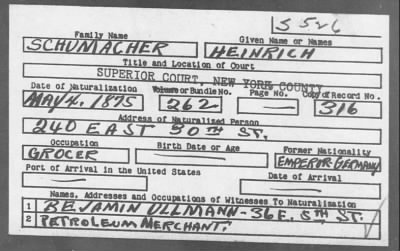 S 526
Family Name Given Name or Names
SCHUMACHER HEINRICH
Title and Location of Court
SUPERIOR COURT, NEW YORK COUNTY
Date of Naturalization Volume or Bundle No. Page No. Copy of Record No.
MAY 4. 1875 262 — 316
Address of Naturalized Person
240 EAST 30TH ST.
Occupation Birth Date or Age Former Nationality
GROCER — EMPEROR GERMANY
Port of Arrival in the United States Date of Arrival
— —
Names, Addresses and Occupations of Witnesses To Naturalization
1 BEJAMIN ULLMANN - 36 E. 5TH ST.
2 PETROLEUM MERCHANT